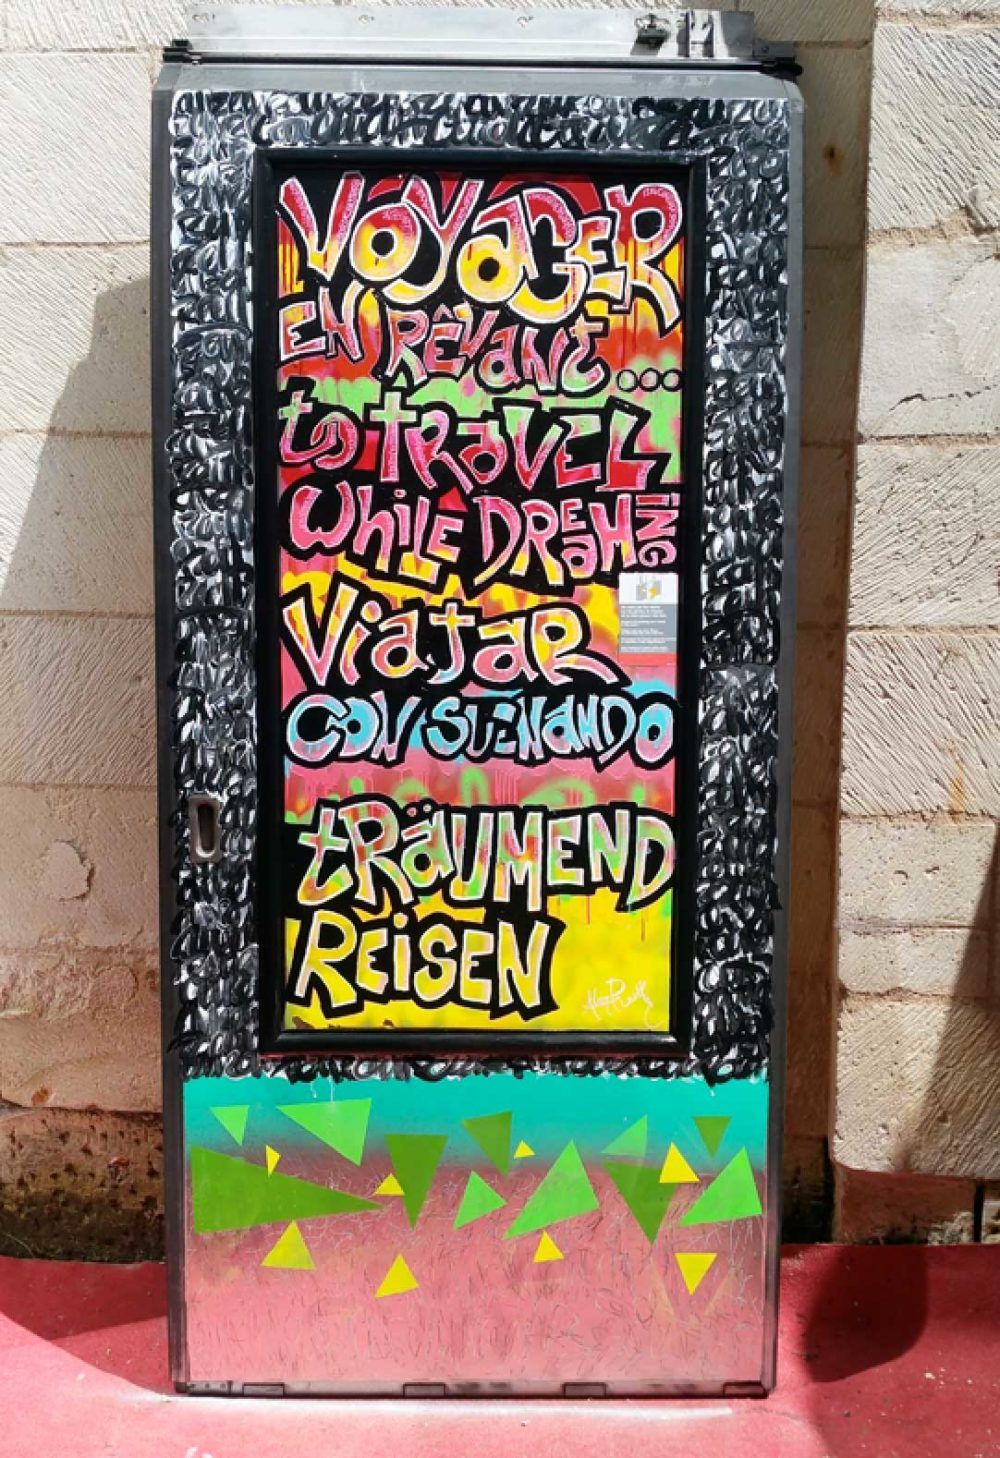 VOYAGER
EN RÊVANT...
to tRAVEL
WhiLE DREAMING
ViatAR
CON SUENANDO
tRÄUMEND
REiSEN